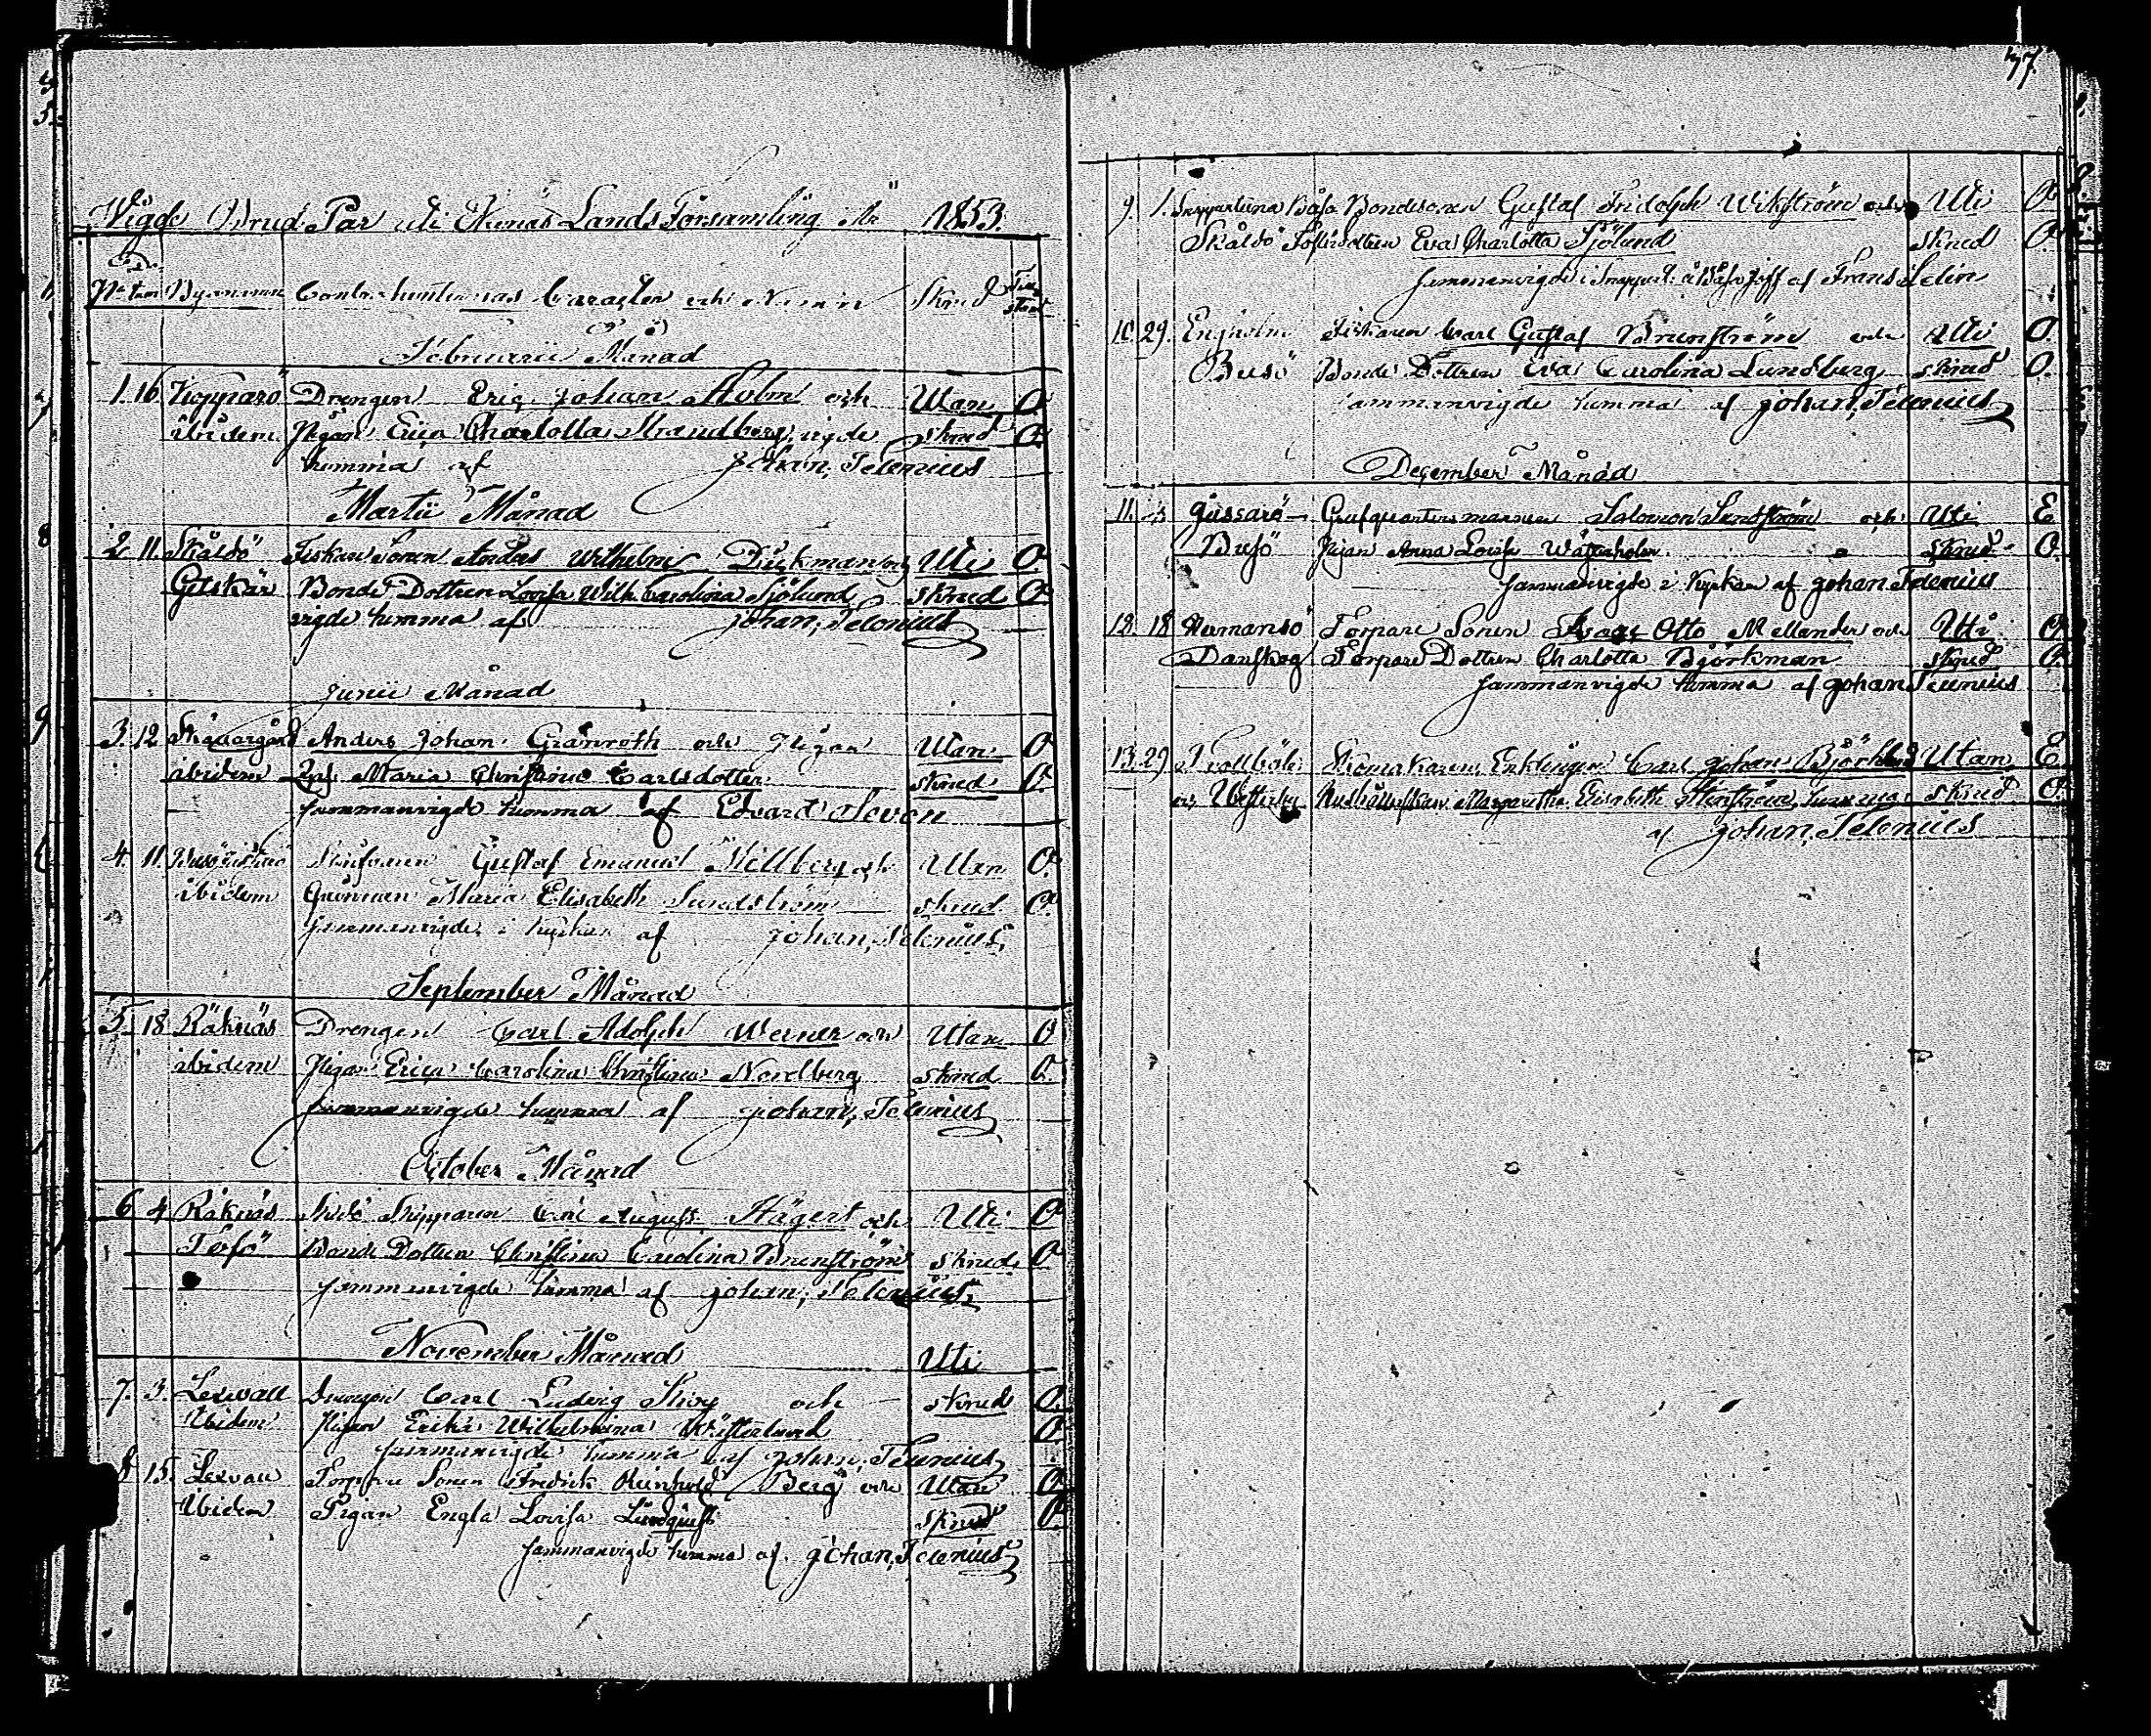 Vigde Brud Par uti Ekenäs Lands Församling År 1853.
Byarnan Contrahenternas Caracter och Namn Skrud
Februarii Månad
1. 16 Kopparö Drengen Eric Johan Holm och Utan O
ibidem Pigan Erica Charlotta Strandberg, vigde skrud O
hemma af Johan, Telenius
Martii Månad
2. 11. Skåldö Fiskare Sonen Anders Wilhelm Dickman och Uti O
Gilskär Bonde Dottren Lovisa Wilh. Carolina Sjölund skrud O
vigde hemma af Johan, Telenius
Junii Månad
3. 12 Anders Johan Granroth och Pigan Utan O
ibidem Maria Christina Carlsdotter skrud O.
sammanvigde hemma af Edvard
4. 11. Gustaf Emanuel och Utan O.
ibidem Maria Elisabeth Sundström skrud O.
sammanvigde i Kyrkan af Johan, Telenius,
September Månad
5. 18 Räknäs Drengen Carl Adolph Werner och Utan O
ibidem Pigan Erica Carolina Christina Nordberg skrud O.
sammanvigde hemma af Johan, Telenius
October Månad
6 4 Räknäs Skepparen Carl August Hägert och Uti O
Bonde Dottren Christina Carolina Brunström skrud O
sammanvigde hemma af Johan, Telenius,
November Månad Uti
7. 3. Lexvall Drengen Carl Ludvig och skrud O.
Ibidem Pigan Erika Wilhelmina Westerlund O.
sammanvigde hemma af Johan, Telenius,
8 15. Lexvall Torpare Sonen Fredrik Reinhold Berg och Utan O
Ibidem Pigan Engla Lovisa Lindquist skrud O.
sammanvigde hemma af Johan, Telenius
77.
9. 1. Båsa Bondesonen Gustaf Fridolph Wikström och Uti O.
Skåldö Eva Charlotta Sjölund skrud O.
sammanvigde i af Frans Selin
10. 29. Fiskaren Carl Gustaf Brunström och Uti O.
Busö Bonde Dottren Eva Carolina Lundberg skrud O.
sammanvigde hemma af Johan, Telenius
December Månad
11. Jussarö Salomon Sandström och Uti E
Busö Pigan Anna Lovisa skrud O.
sammanvigde i Kyrkan af Johan Telenius
12. 18 Hermansö Torpare Sonen Otto Mellander och Uti O.
Danskog Torpare Dottren Charlotta Björkman skrud O.
sammanvigde hemma af Johan Telenius
13. 29 Trollböle Enklingen Carl Johan Björklund Utan E
och Westerby Margaretha Elisabeth hemma skrud O.
af Johan, Telenius